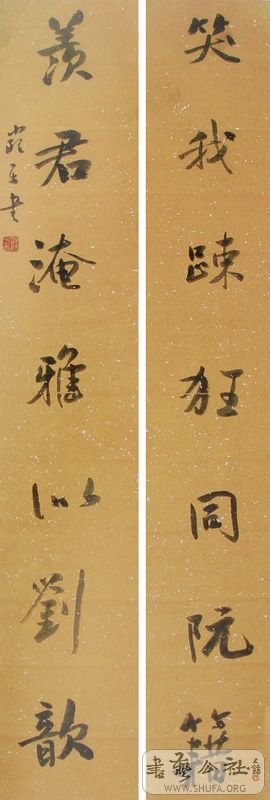 笑我踈狂同阮籍
羨君淹雅似劉歆
書藝公社
WWW.SHUFA.ORG